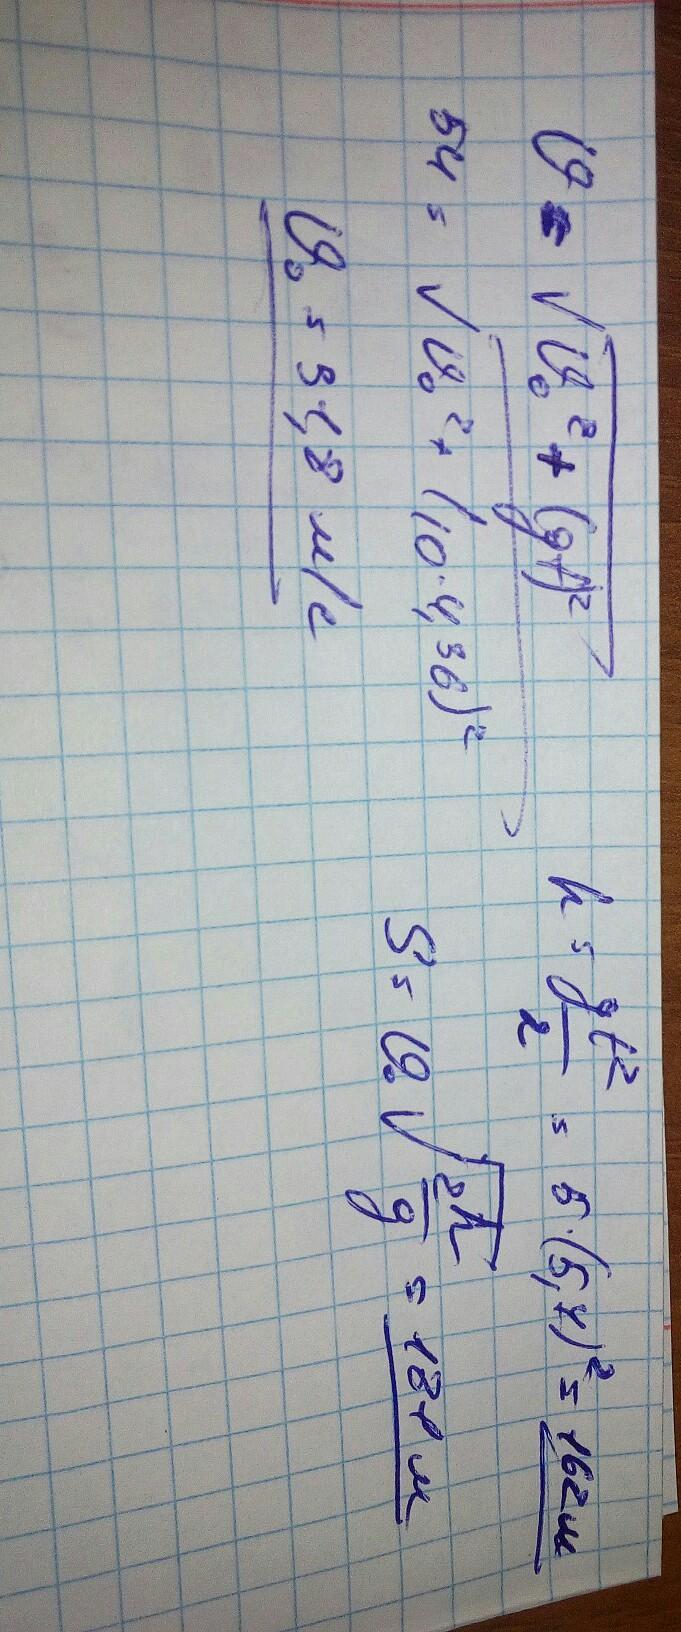 υ = √(υ₀² + (gt)²)
54 = √(υ₀² + (10·4,36)²)
υ₀ = 31,8 м/с
h = gt²/2 = 5·(5,7)² = 162м
S = υ₀√(2h/g) = 181 м